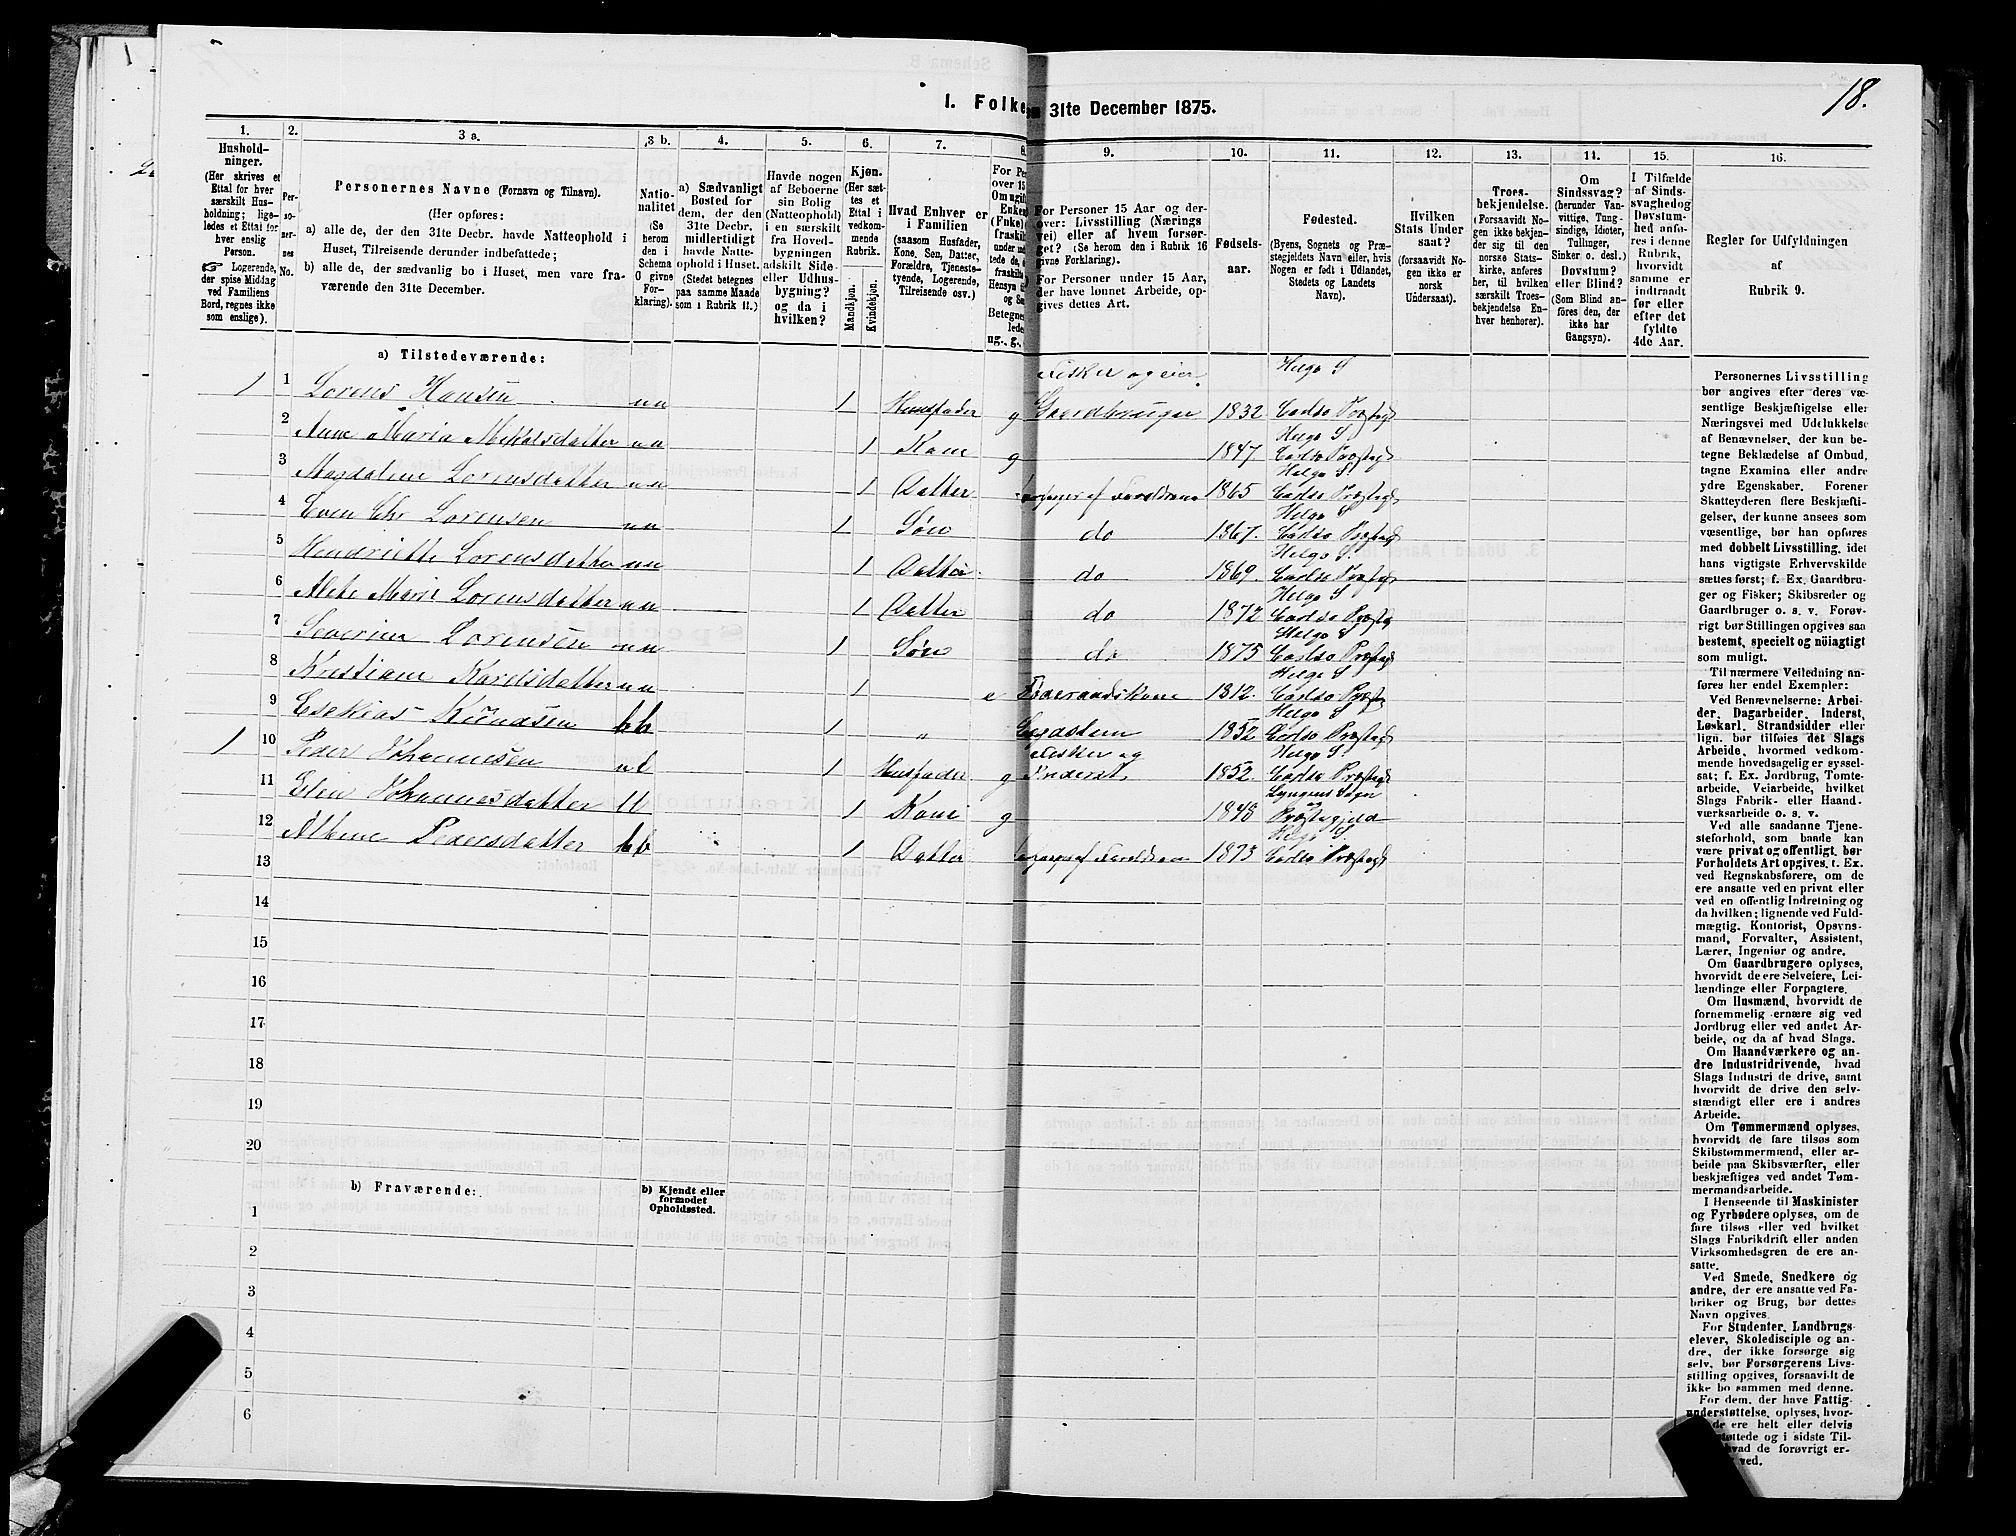 18.
I. Folke
en 31te December 1875.
1.
2.
3 a.
3 b.
4.
5.
6.
7.
8.
9.
10.
11.
12.
13.
14.
15.
16.
Hushold-
ninger.
(Her skrives et
Ettal for hver
særskilt Hus-
holdning; lige-
ledes et Ettal for
hver enslig
Person.
☞ Logerende,
der spise Middag
ved Familiens
Bord, regnes ikke
som enslige).
Per-
so-
ner-
nes
No.
Personernes Navne (Fornavn og Tilnavn).
(Her opføres:
a) alle de, der den 31te Decbr. havde Natteophold i
Huset, Tilreisende derunder indbefattede;
b) alle de, der sædvanlig bo i Huset, men vare fra-
værende den 31te December.
Natio-
nalitet
(Se
herom
den i
Schema
O givne
For-
klaring).
a) Sædvanligt
Bosted for
dem, der den
31te Decbr.
midlertidigt
havde Natte-
ophold i Huset.
(Stedet betegnes
paa samme Maade
som i Rubrik 11.)
Havde nogen
af Beboerne
sin Bolig
(Natteophold)
i en særskilt
fra Hoved-
bygningen
adskilt Side-
eller Udhus-
bygning?
og da i
hvilken?
Kjøn.
(Her sæt-
tes et
Ettal i
vedkom-
mende
Rubrik.
Mandkjøn.
Kvindekjøn.
Hvad Enhver er
i Familien
(saasom Husfader,
Kone, Søn, Datter,
Forældre, Tjeneste-
tyende, Logerende,
Tilreisende osv.)
For Personer 15 Aar og der-
over: Livsstilling (Nærings
vei) eller af hvem forsør-
get? (Se herom den i Rubrik 16
givne Forklaring).
For Personer under 15 Aar,
der have lønnet Arbeide, op-
gives dettes Art.
Fødsels-
aar.
Fødested.
(Byens, Sognets og Præ-
stegjeldets Navn eller, hvis
Nogen er født i Udlandet,
Stedets og Landets
Navn).
Hvilken
Stats Under
saat?
(forsaavidt No-
gen ikke er
norsk
Undersaat).
Troes-
bekjendelse.
(Forsaavidt No-
gen ikke bekjen-
der sig til den
norske Stats-
kirke, anføres
her, til hvilken
særskilt Troes-
bekjendelse En-
hver henhører).
Om
Sindssvag?
(herunder Van-
vittige, Tung-
sindige, Idioter,
Tullinger,
Sinker o. desl.)
Døvstum?
eller Blind?
(Som Blind an-
føres den, der
ikke har
Gangsyn).
I Tilfælde
af Sinds-
svaghed og
Døvstum-
hed anfø-
res i denne
Rubrik,
hvorvidt
samme er
indtraadt
før eller
efter det
fyldte
4de Aar.
Regler for Udfyldningen
af
Rubrik 9.
a) Tilstedeværende:
1 1 Lorens Hansen nn 1 Husfader g Fisker og eier Gaardbruger 1832 Helgø S Carlsø Præstegd
2 Anne Maria Nikolsdatter nn 1 Kone g 1847 Helgø S Carlsø Præstegd
3 Magdalene Lorensdatter nn 1 Datter forsørges af Foreldrene 1865 Helgø S. Carlsø Præstegd
4 Even Chr Lorensen nn 1 Søn do 1867. Helgø S Carlsø Præstegd
5 Hendriette Lorensdatter nn 1 Datter do 1869. Helgø S. Carlsø Præstegd
6 Alete Marie Lorensdatter nn 1 Datter do 1872 Helgø S Carlsø Præstegd
7 Severin Lorensen nn 1 Søn do 1875 Helgø S Carlsø Præstegd
8 Kristiane Karelsdatter nn 1 e Føderaadskone 1812. Helgø S Carlsø Præstegd
9 Esekias Knudsen bb 1 " 1852 Helgø S Carlsø Præstegd
1 10 Peder Johannesen nl 1 Husfader g Fisker og Inderst 1852. Helgø S. Carlsø Præstegd
11 Elen Johannesdatter ll 1 Kone g 1848 Lyngens Sogn og Præstegjeld
12 Albine Pedersdatter bb 1 Datter forsørges af Foreldrene 1873 Helgø S. Carlsø Præstegd
13
14
15
16
17
18
19
20
b) Fraværende:
b) Kjendt eller
formodet
Opholdssted.
1
2
3
4
5
6
Personernes Livsstilling
bør angives efter deres væ-
sentlige Beskjæftigelse eller
Næringsvei med Udelukkelse
af Benævnelser, der kun be-
tegne Beklædelse af Ombud,
tagne Examina eller andre
ydre Egenskaber. Forener
Skatteyderen flere Beskjæfti-
gelser, der kunne ansees som
væsentlige, bør han opføres
med dobbelt Livsstilling, idet
hans vigtigste Erhvervskilde
sættes først; f. Ex. Gaardbru-
ger og Fisker; Skibsreder og
Gaardbruger o. s. v. Forøv-
rigt bør Stillingen opgives saa
bestemt, specielt og nöiagtigt
som muligt.
Til nærmere Veiledning an-
føres her endel Exempler:
Ved Benævnelserne: Arbei-
der, Dagarbeider, Inderst,
Løskarl, Strandsidder eller
lign. bør tilføies det Slags
Arbeide, hvormed vedkom-
mende hovedsagelig er syssel-
sat; f. Ex. Jordbrug, Tomte-
arbeide, Veiarbeide, hvilket
Slags Fabrik- eller Haand-
værksarbeide o. s. v.
Ved alle saadanne Tjene-
steforhold, som baade kan
være privat og offentligt, bør
Forholdets Art opgives. f. Ex.
ved Regnskabsførere, om de
ere ansatte ved en privat eller
ved en offentlig Indretning og
da hvilken; lignende ved Fuld-
mægtig, Kontorist, Opsyns-
mand, Forvalter, Assistent,
Lærer, Ingeniør og andre.
Om Gaardbrugere oplyses,
hvorvidt de ere Selveiere, Lei-
lændinge eller Forpagtere.
Om Husmænd, hvorvidt de
fornemmelig ernære sig ved
Jordbrug eller ved andet Ar-
beide, og da af hvad Slags.
Om Haandværkere og an-
dre Industridrivende, hvad
Slags Industri de drive, samt
hvorvidt de drive den selv-
stændigt eller ere i andres
Arbeide.
Om Tømmermænd oplyses,
hvorvidt de fare tilsøs som
Skibstømmermænd, eller ar-
beide paa Skibsværfter, eller
beskjæftiges ved andet Tøm-
mermandsarbeide.
I Henseende til Maskinister
og Fyrbødere oplyses, om de
fare tilsøs eller ved hvilket
Slags Fabrikdrift eller anden
Virksomhedsgren de ere an-
satte.
Ved Smede, Snedkere og
andre, der ere ansatte ved Fa-
briker og Brug, bør dettes
Navn opgives.
For Studenter, Landbrugs-
elever, Skoledisciple og an-
dre, der ikke forsørge sig
selv, bør Forsørgerens Livs-
stilling opgives, forsaavidt de
ikke bo sammen med denne.
For dem, der have Fattig-
understøttelse, oplyses, hvor-
ere helt eller delvis
og i sidste Til-
hvad de forøvrigt er-
ved.